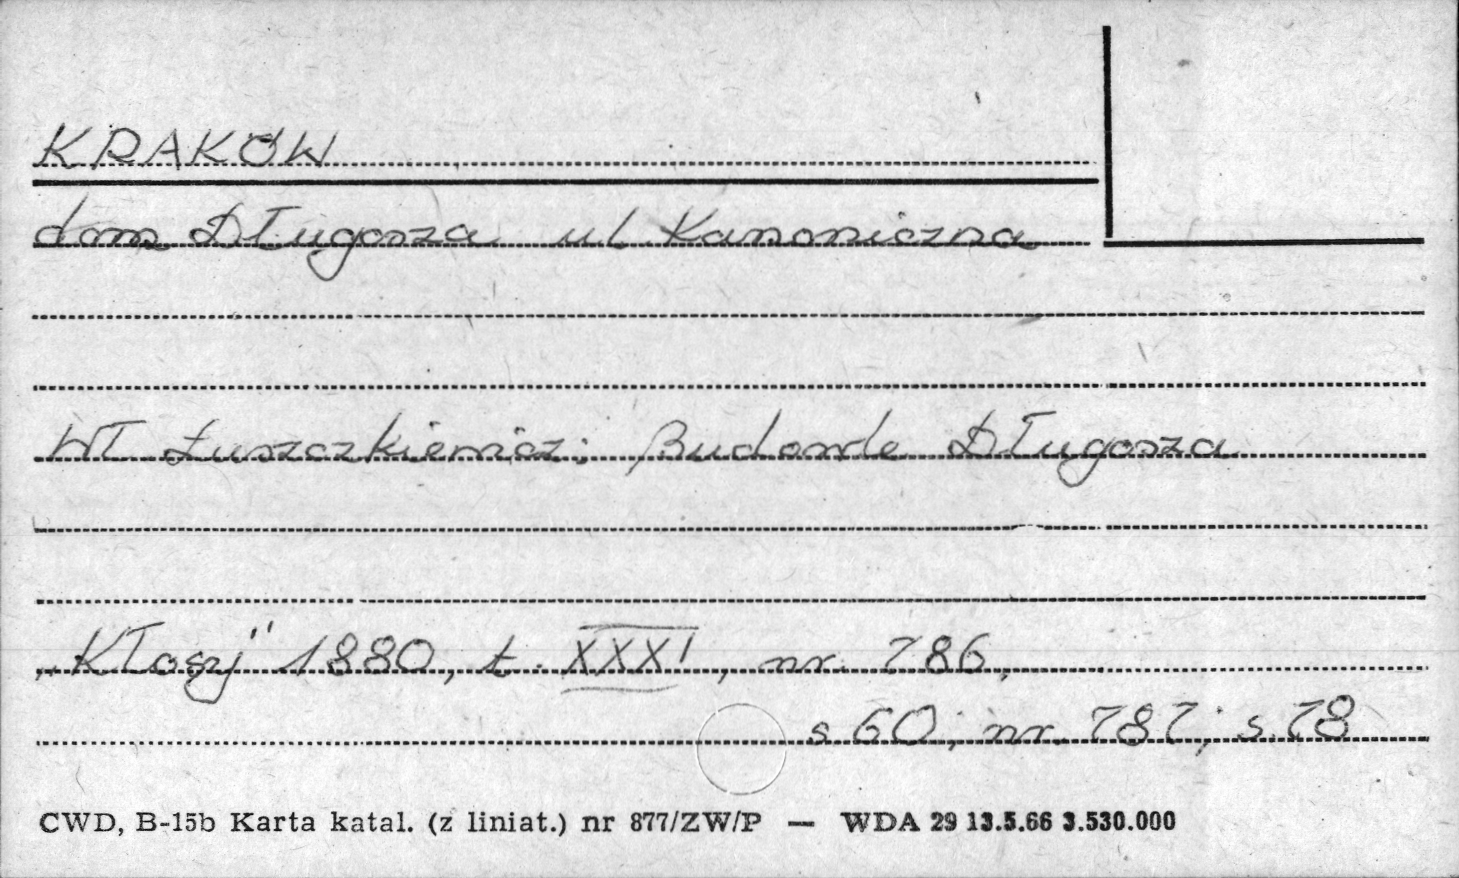 KRAKÓW
dom Długosza ul Kanoniczna
Wł Łuszczkiewicz: Budowle Długosza
„Kłosy" 1880, t. XXXI, nr. 786,
s 60; nr. 787; s. 78
CWD, B-15b Karta katal. (z liniat.) nr 877/ZW/P — WDA 29 13.5.66 3.530.000